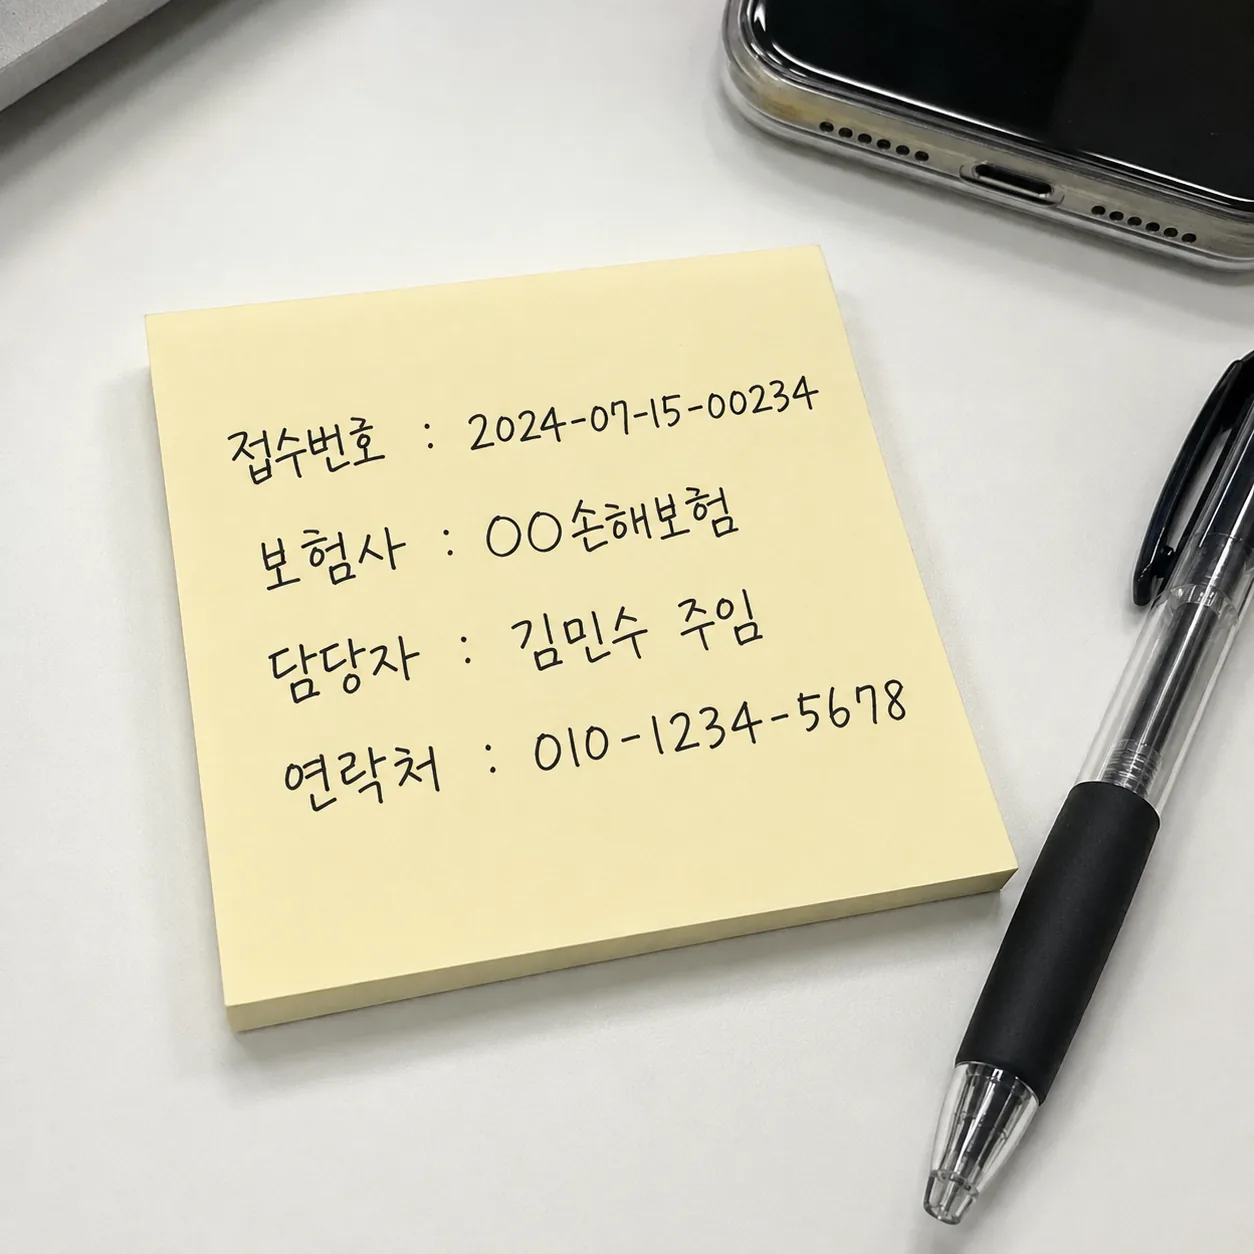 접수번호 : 2024-07-15-00234
보험사 : OO손해보험
담당자 : 김민수 주임
연락처 : 010-1234-5678